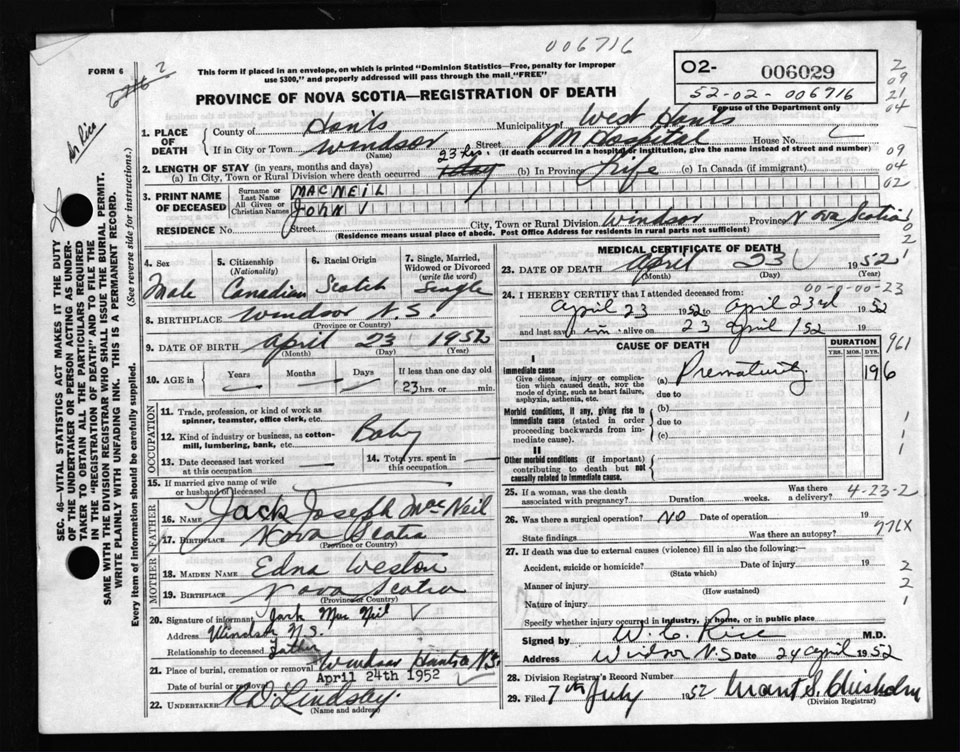 006716
FORM 6
This form if placed in an envelope, on which is printed "Dominion Statistics—Free, penalty for improper
use $300," and properly addressed will pass through the mail "FREE"
O2- 006029
52-02-006716
For use of the Department only
PROVINCE OF NOVA SCOTIA—REGISTRATION OF DEATH
Dr Rice
2
09
21
04
09
04
02
SEC. 46—VITAL STATISTICS ACT MAKES IT THE DUTY
OF THE UNDERTAKER OR PERSON ACTING AS UNDER-
TAKER TO OBTAIN ALL THE PARTICULARS REQUIRED
IN THE "REGISTRATION OF DEATH" AND TO FILE THE
SAME WITH THE DIVISION REGISTRAR WHO SHALL ISSUE THE BURIAL PERMIT.
WRITE PLAINLY WITH UNFADING INK. THIS IS A PERMANENT RECORD.
Every item of information should be carefully supplied. (See reverse side for instructions.)
1. PLACE OF DEATH
County of Hants Municipality of West Hants
If in City or Town Windsor Street Hospital House No.
(Name) (If death occurred in a hospital or institution, give the name instead of street and number)
2. LENGTH OF STAY (in years, months and days) 23 hrs.
(a) In City, Town or Rural Division where death occurred 1 day (b) In Province Life (c) In Canada (if immigrant)
3. PRINT NAME OF DECEASED
Surname or Last Name MACNEIL
All Given or Christian Names JOHN
RESIDENCE No. Street City, Town or Rural Division Windsor Province Nova Scotia
(Residence means usual place of abode. Post Office Address for residents in rural parts not sufficient)
4. Sex 5. Citizenship (Nationality) 6. Racial Origin 7. Single, Married, Widowed or Divorced (write the word)
Male Canadian Scotch Single
8. BIRTHPLACE Windsor N.S.
(Province or Country)
9. DATE OF BIRTH April 23 1952
(Month) (Day) (Year)
10. AGE in Years Months Days If less than one day old
23 hrs. or min.
OCCUPATION
11. Trade, profession, or kind of work as
spinner, teamster, office clerk, etc.
12. Kind of industry or business, as cotton-
mill, lumbering, bank, etc. Baby
13. Date deceased last worked
at this occupation
14. Total yrs. spent in
this occupation
15. If married give name of wife
or husband of deceased
FATHER
16. NAME Jack Joseph MacNeil
17. BIRTHPLACE Nova Scotia
(Province or Country)
MOTHER
18. MAIDEN NAME Edna Weston
19. BIRTHPLACE Nova Scotia
(Province or Country)
20. Signature of informant Jack Mac Neil
Address Windsor N.S.
Relationship to deceased Father
21. Place of burial, cremation or removal Windsor Hants N.S.
Date of burial or removal April 24th 1952
22. UNDERTAKER Lindsay.
(Name and address)
MEDICAL CERTIFICATE OF DEATH
23. DATE OF DEATH April 23 1952
(Month) (Day) (Year)
00-0-00-23
24. I HEREBY CERTIFY that I attended deceased from:
April 23 1952 to April 23rd 1952
and last saw im alive on 23 April /52 19
CAUSE OF DEATH DURATION
YRS. MOS. DYS.
961
I
Immediate cause
Give disease, injury or complica-
tion which caused death, nor the
mode of dying, such as heart failure,
asphyxia, asthenia, etc.
(a) Prematurity.
due to
Morbid conditions, if any, giving rise to
immediate cause (stated in order
proceeding backwards from im-
mediate cause).
(b)
due to
(c)
II
Other morbid conditions (if important)
contributing to death but not
causally related to immediate cause.
1
1
1
25. If a woman, was the death
associated with pregnancy? Duration weeks. Was there
a delivery? 4-23-2
26. Was there a surgical operation? NO Date of operation 19
State findings Was there an autopsy?
776X
27. If death was due to external causes (violence) fill in also the following:—
Accident, suicide or homicide? Date of injury 19
(State which)
Manner of injury
(How sustained)
Nature of injury
Specify whether injury occurred in industry, in home, or in public place
2
2
1
Signed by W. C. Rice M.D.
Address Windsor N.S Date 24 April 1952
28. Division Registrar's Record Number
29. Filed 7th July 1952 Grant S. Chisholm
(Division Registrar)